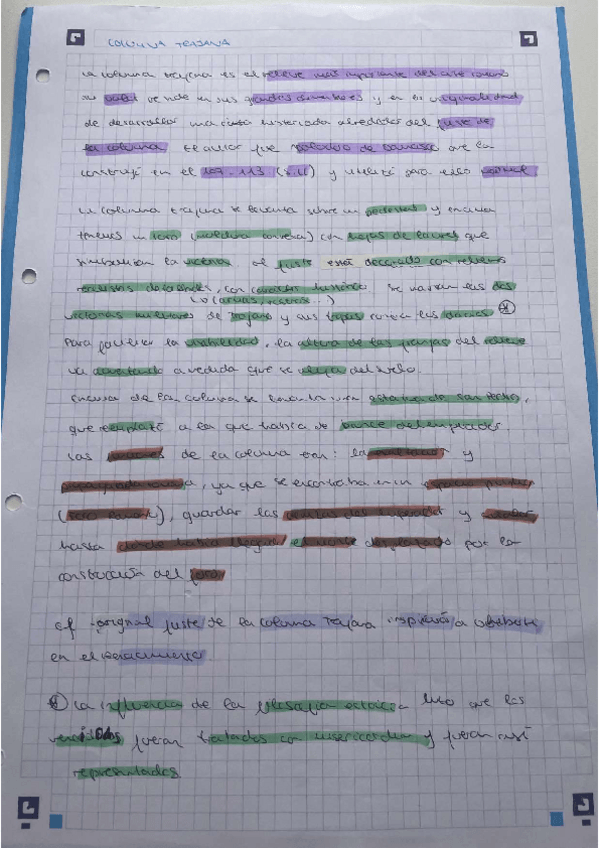 COLUMNA TRAJANA
La columna trajana es el relieve más importante del arte romano
su valor reside en sus grandes dimensiones y en la originalidad
de desarrollar una cinta historiada alrededor del fuste de
la columna. El autor fue Apolodoro de Damasco que la
construyó en el 107-113 (s.II) y utilizó para ello mármol
La columna trajana se levanta sobre un pedestal y encima
tenemos un toro (moldura convexa) con hojas de laurel que
simbolizan la victoria. el fuste está decorado con relieves
con carácter histórico se narran las dos
victorias militares de Trajano y sus tropas contra los dacios *
Para facilitar la visibilidad, la altura de las franjas del relieve
va aumentando a medida que se aleja del suelo.
Encima de la columna se levanta una estatua de San Pedro,
que reemplazó a la que había de bronce del emperador
Las funciones de la columna eran: la y
, ya que se encontraba en un espacio público
(foro romano), guardar las cenizas del emperador y señalar
hasta donde había llegado el monte desplazado por la
construcción del foro
el original fuste de la columna Trajana inspirará a
en el renacimiento.
* La influencia de la filosofía estoica hizo que los
vencidos fueran tratados con misericordia y fueran así
representados